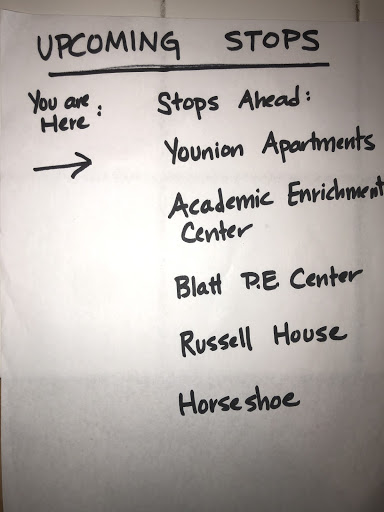 UPCOMING STOPS
You are Here:
Stops Ahead:
Younion Apartments
Academic Enrichment
Center
Blatt P.E. Center
Russell House
Horseshoe